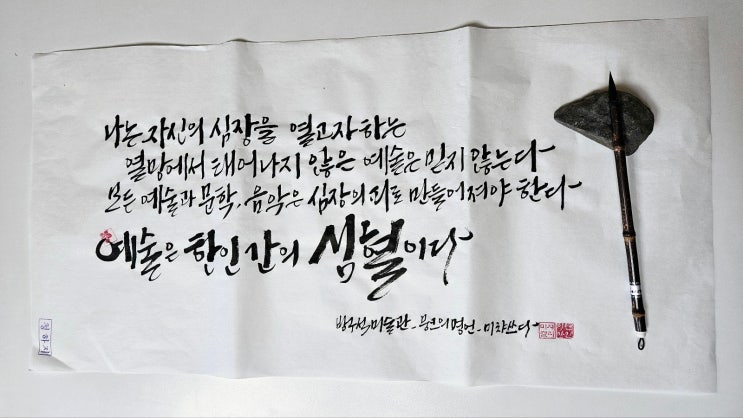 나는 자신의 심장을 열고자하는
열망에서 태어나지 않은 예술은 믿지 않는다
모든 예술과 문학, 음악은 심장의 피로 만들어져야 한다
예술은 한인간의 심혈이다
방구석미술관 - 뭉크의명언 - 미랑쓰다